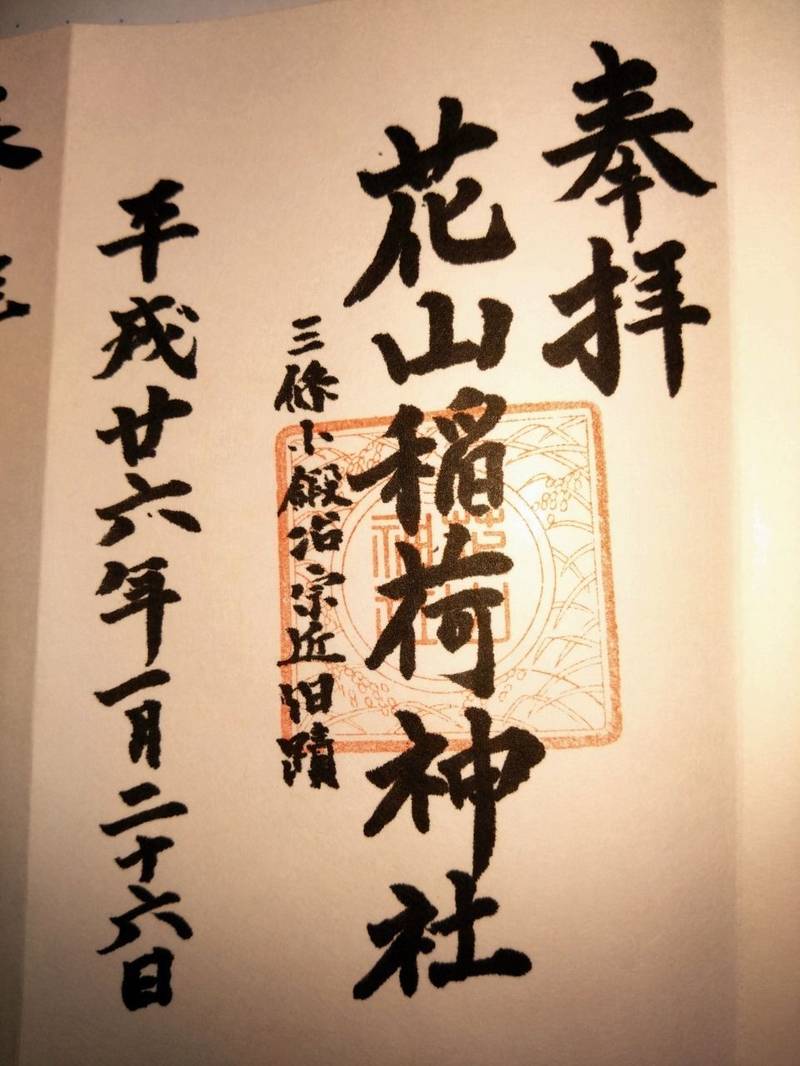 奉拝
花山稲荷神社
三條小鍛冶宗近旧蹟
平成廿六年一月二十六日